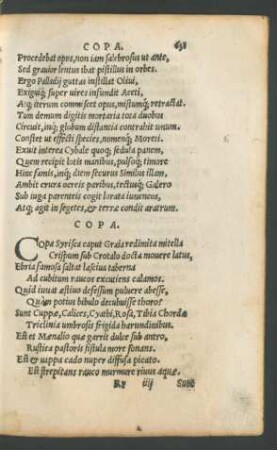 COPA. 631
Procedebat opus, non iam salebrosus ut ante,
Sed grauior lentus ibat pistillus in orbes.
Ergo Palladij guttas instillat Oliui,
Exiguiq; super uires infundit Aceti,
Atq; iterum commiscet opus, mistumq; retractat.
Tum demum digitis mortaria tota duobus
Circuit, inq; globum distantia contrahit unum.
Constet ut effecti species, nomenq; Moreti.
Eruit interea Cybale quoq; sedula panem,
Quem recipit lotis manibus, pulsoq; timore
Hinc famis, inq; diem securus Similus illam,
Ambit crura ocreis paribus, tectusq; Galero
Sub iuga parentes cogit lorata iuuencus,
Atq; agit in segetes, & terræ condit aratrum.
COPA.
COpa Syrisca caput Graia redimita mitella
Crispum sub Crotalo docta mouere latus,
Ebria famosa saltat lasciua taberna
Ad cubitum raucos excutiens calamos.
Quid iuuat æstiuo defessum puluere abesse,
Quàm potius bibulo decubuisse thoro?
Sunt Cuppæ, Calices, Cyathi, Rosa, Tibia Chordæ
Triclinia umbrosis frigida harundinibus.
Est et Mænalio quæ garrit dulce sub antro,
Rustica pastoris fistula more sonans.
Est & uappa cado nuper diffusa picato.
Est strepitans rauco murmure riuus aquæ.
Rr iij Sunt